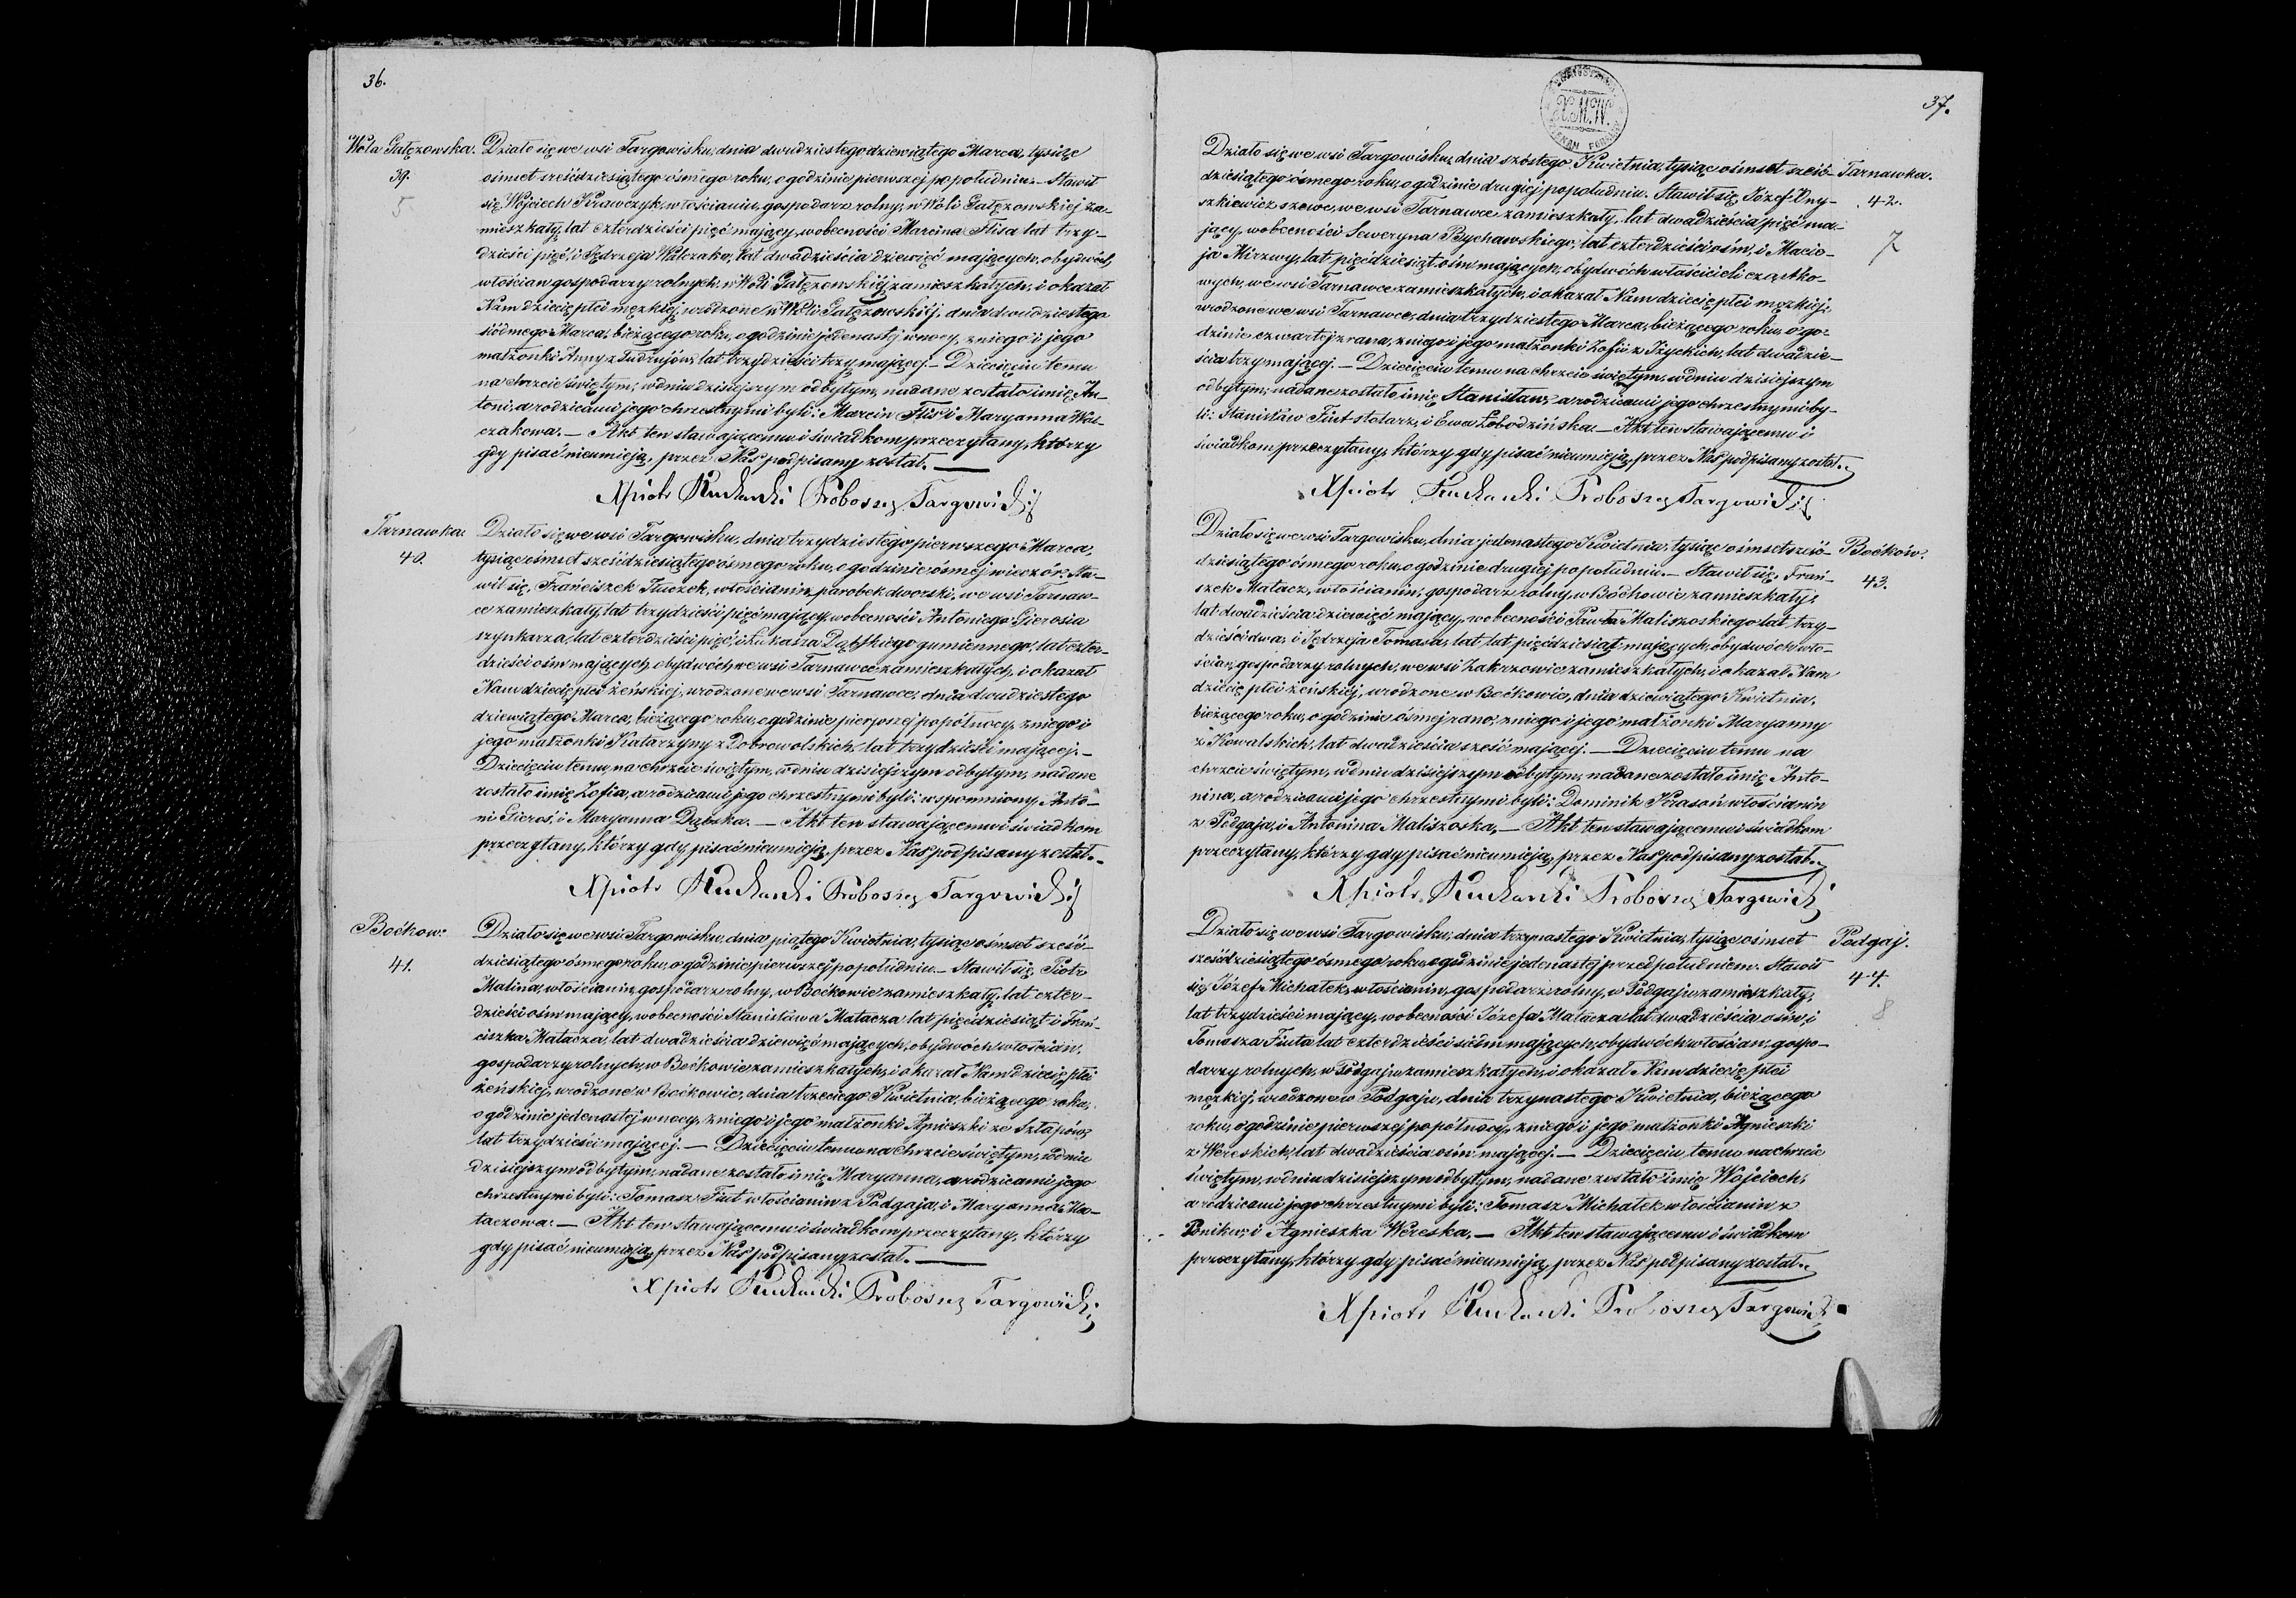 36.
Wola Gałęzowska.
39.
5
Działo się we wsi Targowisku, dnia dwudziestego dziewiątego Marca, tysiąc
ośmset sześćdziesiątego ósmego roku, o godzinie pierwszej po południu. – Stawił
się Wojciech Krawczyk, włościanin, gospodarz rolny, w Woli Gałęzowskiej za-
mieszkały, lat czterdzieści pięć mający, w obecności Marcina Flisa lat trzy-
dzieści pięć, i Jędrzeja Walczaka, lat dwadzieścia dziewięć mających, obydwóch
włościan gospodarzy rolnych, w Woli Gałęzowskiej zamieszkałych, i okazał
Nam dziecię płci męzkiej, urodzone w Woli Gałęzowskiej, dnia dwudziestego
siódmego Marca, bieżącego roku, o godzinie jedenastej w nocy, z niego i jego
małżonki Anny z lat trzydzieści trzy mającej. – Dziecięciu temu
na chrzcie świętym, w dniu dzisiejszym odbytym, nadane zostało imię An-
toni, a rodzicami jego chrzestnymi byli: Marcin Flis i Maryanna Wal-
czakowa. – Akt ten stawającemu i świadkom przeczytany, którzy
gdy pisać nieumieją, przez Nas podpisany został. –
X Piotr Proboszcz Targowiski
Tarnawka.
40.
Działo się we wsi Targowisku, dnia trzydziestego pierwszego Marca,
tysiąc ośmset sześćdziesiątego ósmego roku, o godzinie ósmej wieczór. Sta-
wił się, Franciszek Tłuczek, włościanin, parobek dworski, we wsi Tarnaw-
ce zamieszkały, lat trzydzieści pięć mający, w obecności Antoniego Gierosia
szynkarza, lat czterdzieści pięć, i Łukasza Dąbskiego gumiennego, lat czter-
dzieści ośm mających, obydwóch we wsi Tarnawce zamieszkałych, i okazał
Nam dziecię płci żeńskiej, urodzone we wsi Tarnawce, dnia dwudziestego
dziewiątego Marca, bieżącego roku, o godzinie pierwszej po północy, z niego i
jego małżonki Katarzyny z Dobrowolskich, lat trzydzieści mającej. –
Dziecięciu temu, na chrzcie świętym, w dniu dzisiejszym odbytym, nadane
zostało imię Zofia, a rodzicami jego chrzestnymi byli: wspomniony Anto-
ni Gieroś, i Maryanna Dąbska. – Akt ten stawającemu i świadkom
przeczytany, którzy gdy pisać nieumieją, przez Nas podpisany został. –
X Piotr Proboszcz Targowiski
Boćków.
41.
Działo się we wsi Targowisku, dnia piątego Kwietnia, tysiąc ośmset sześć-
dziesiątego ósmego roku, o godzinie pierwszej po południu. – Stawił się, Piotr
Malina, włościanin, gospodarz rolny, w Boćkowie zamieszkały, lat czter-
dzieści ośm mający, w obecności Stanisława Matacza lat pięćdziesiąt i Fran-
ciszka Matacza, lat dwadzieścia dziewięć mających, obydwóch włościan,
gospodarzy rolnych, w Boćkowie zamieszkałych, i okazał Nam dziecię płci
żeńskiej, urodzone w Boćkowie, dnia trzeciego Kwietnia, bieżącego roku,
o godzinie jedenastej w nocy, z niego i jego małżonki Agnieszki ze Szłapów,
lat trzydzieści mającej. – Dziecięciu temu na chrzcie świętym, w dniu
dzisiejszym odbytym, nadane zostało imię Maryanna, a rodzicami jego
chrzestnymi byli: Tomasz Fiut włościanin z Podgaja, i Maryanna Ma-
taczowa. – Akt ten stawającemu i świadkom przeczytany, którzy
gdy pisać nieumieją, przez Nas podpisany został. –
X Piotr Proboszcz Targowiski
37.
X.M.W.
Tarnawka.
42.
7
Działo się we wsi Targowisku, dnia szóstego Kwietnia, tysiąc ośmset sześć-
dziesiątego ósmego roku, o godzinie drugiej po południu. Stawił się, Józef Ony-
szkiewicz szewc, we wsi Tarnawce zamieszkały, lat dwadzieścia pięć ma-
jący, w obecności Seweryna Bychawskiego, lat czterdzieści ośm, i Macie-
ja Mirzwy, lat pięćdziesiąt ośm mających, obydwóch właścicieli cząstko-
wych, we wsi Tarnawce zamieszkałych, i okazał Nam dziecię płci męzkiej,
urodzone we wsi Tarnawce, dnia trzydziestego Marca, bieżącego roku, o go-
dzinie czwartej z rana, z niego i jego małżonki Zofii z Iżyckich, lat dwadzie-
ścia trzy mającej. – Dziecięciu temu na chrzcie świętym, w dniu dzisiejszym
odbytym, nadane zostało imię Stanisław, a rodzicami jego chrzestnymi by-
li: Stanisław Fiut stolarz, i Ewa Łobodzińska. – Akt ten stawającemu i
świadkom przeczytany, którzy gdy pisać nieumieją, przez Nas podpisany został. –
X Piotr Proboszcz Targowiski
Boćków.
43.
Działo się we wsi Targowisku, dnia jedenastego Kwietnia, tysiąc ośmset sześć-
dziesiątego ósmego roku, o godzinie drugiej po południu. – Stawił się, Fran-
szek Matacz, włościanin, gospodarz rolny, w Boćkowie zamieszkały,
lat dwadzieścia dziewięć mający, w obecności Pawła Maliszoskiego lat trzy-
dzieści dwa, i Jędrzeja Tomasa, lat lat pięćdziesiąt mających, obydwóch wło-
ścian, gospodarzy rolnych, we wsi Zakrzowie zamieszkałych, i okazał Nam
dziecię płci żeńskiej, urodzone w Boćkowie, dnia dziewiątego Kwietnia,
bieżącego roku, o godzinie ósmej rano, z niego i jego małżonki Maryanny
z Kowalskich, lat dwadzieścia sześć mającej. – Dziecięciu temu na
chrzcie świętym, w dniu dzisiejszym odbytym, nadane zostało imię Anto-
nina, a rodzicami jego chrzestnymi byli: Dominik Krasoń włościanin
z Podgaja, i Antonina Maliszoska. – Akt ten stawającemu i świadkom
przeczytany, którzy gdy pisać nieumieją, przez Nas podpisany został. –
X Piotr Proboszcz Targowiski
Podgaj.
44.
8
Działo się we wsi Targowisku, dnia trzynastego Kwietnia, tysiąc ośmset
sześćdziesiątego ósmego roku, o godzinie jedenastej przed południem. Stawił
się, Józef Michałek, włościanin, gospodarz rolny, w Podgaju zamieszkały,
lat trzydzieści mający, w obecności Józefa Matacza lat dwadzieścia ośm, i
Tomasza Fiuta lat czterdzieści siedm mających, obydwóch włościan, gospo-
darzy rolnych, w Podgaju zamieszkałych, i okazał Nam dziecię płci
męzkiej, urodzone w Podgaju, dnia trzynastego Kwietnia, bieżącego
roku, o godzinie pierwszej po północy, z niego i jego małżonki Agnieszki
z Wereskich, lat dwadzieścia ośm mającej. – Dziecięciu temu na chrzcie
świętym, w dniu dzisiejszym odbytym, nadane zostało imię Wojciech,
a rodzicami jego chrzestnymi byli: Tomasz Michałek włościanin z
Ponikw, i Agnieszka Wereska. – Akt ten stawającemu i świadkom
przeczytany, którzy gdy pisać nieumieją, przez Nas podpisany został. –
X Piotr Proboszcz Targowiski